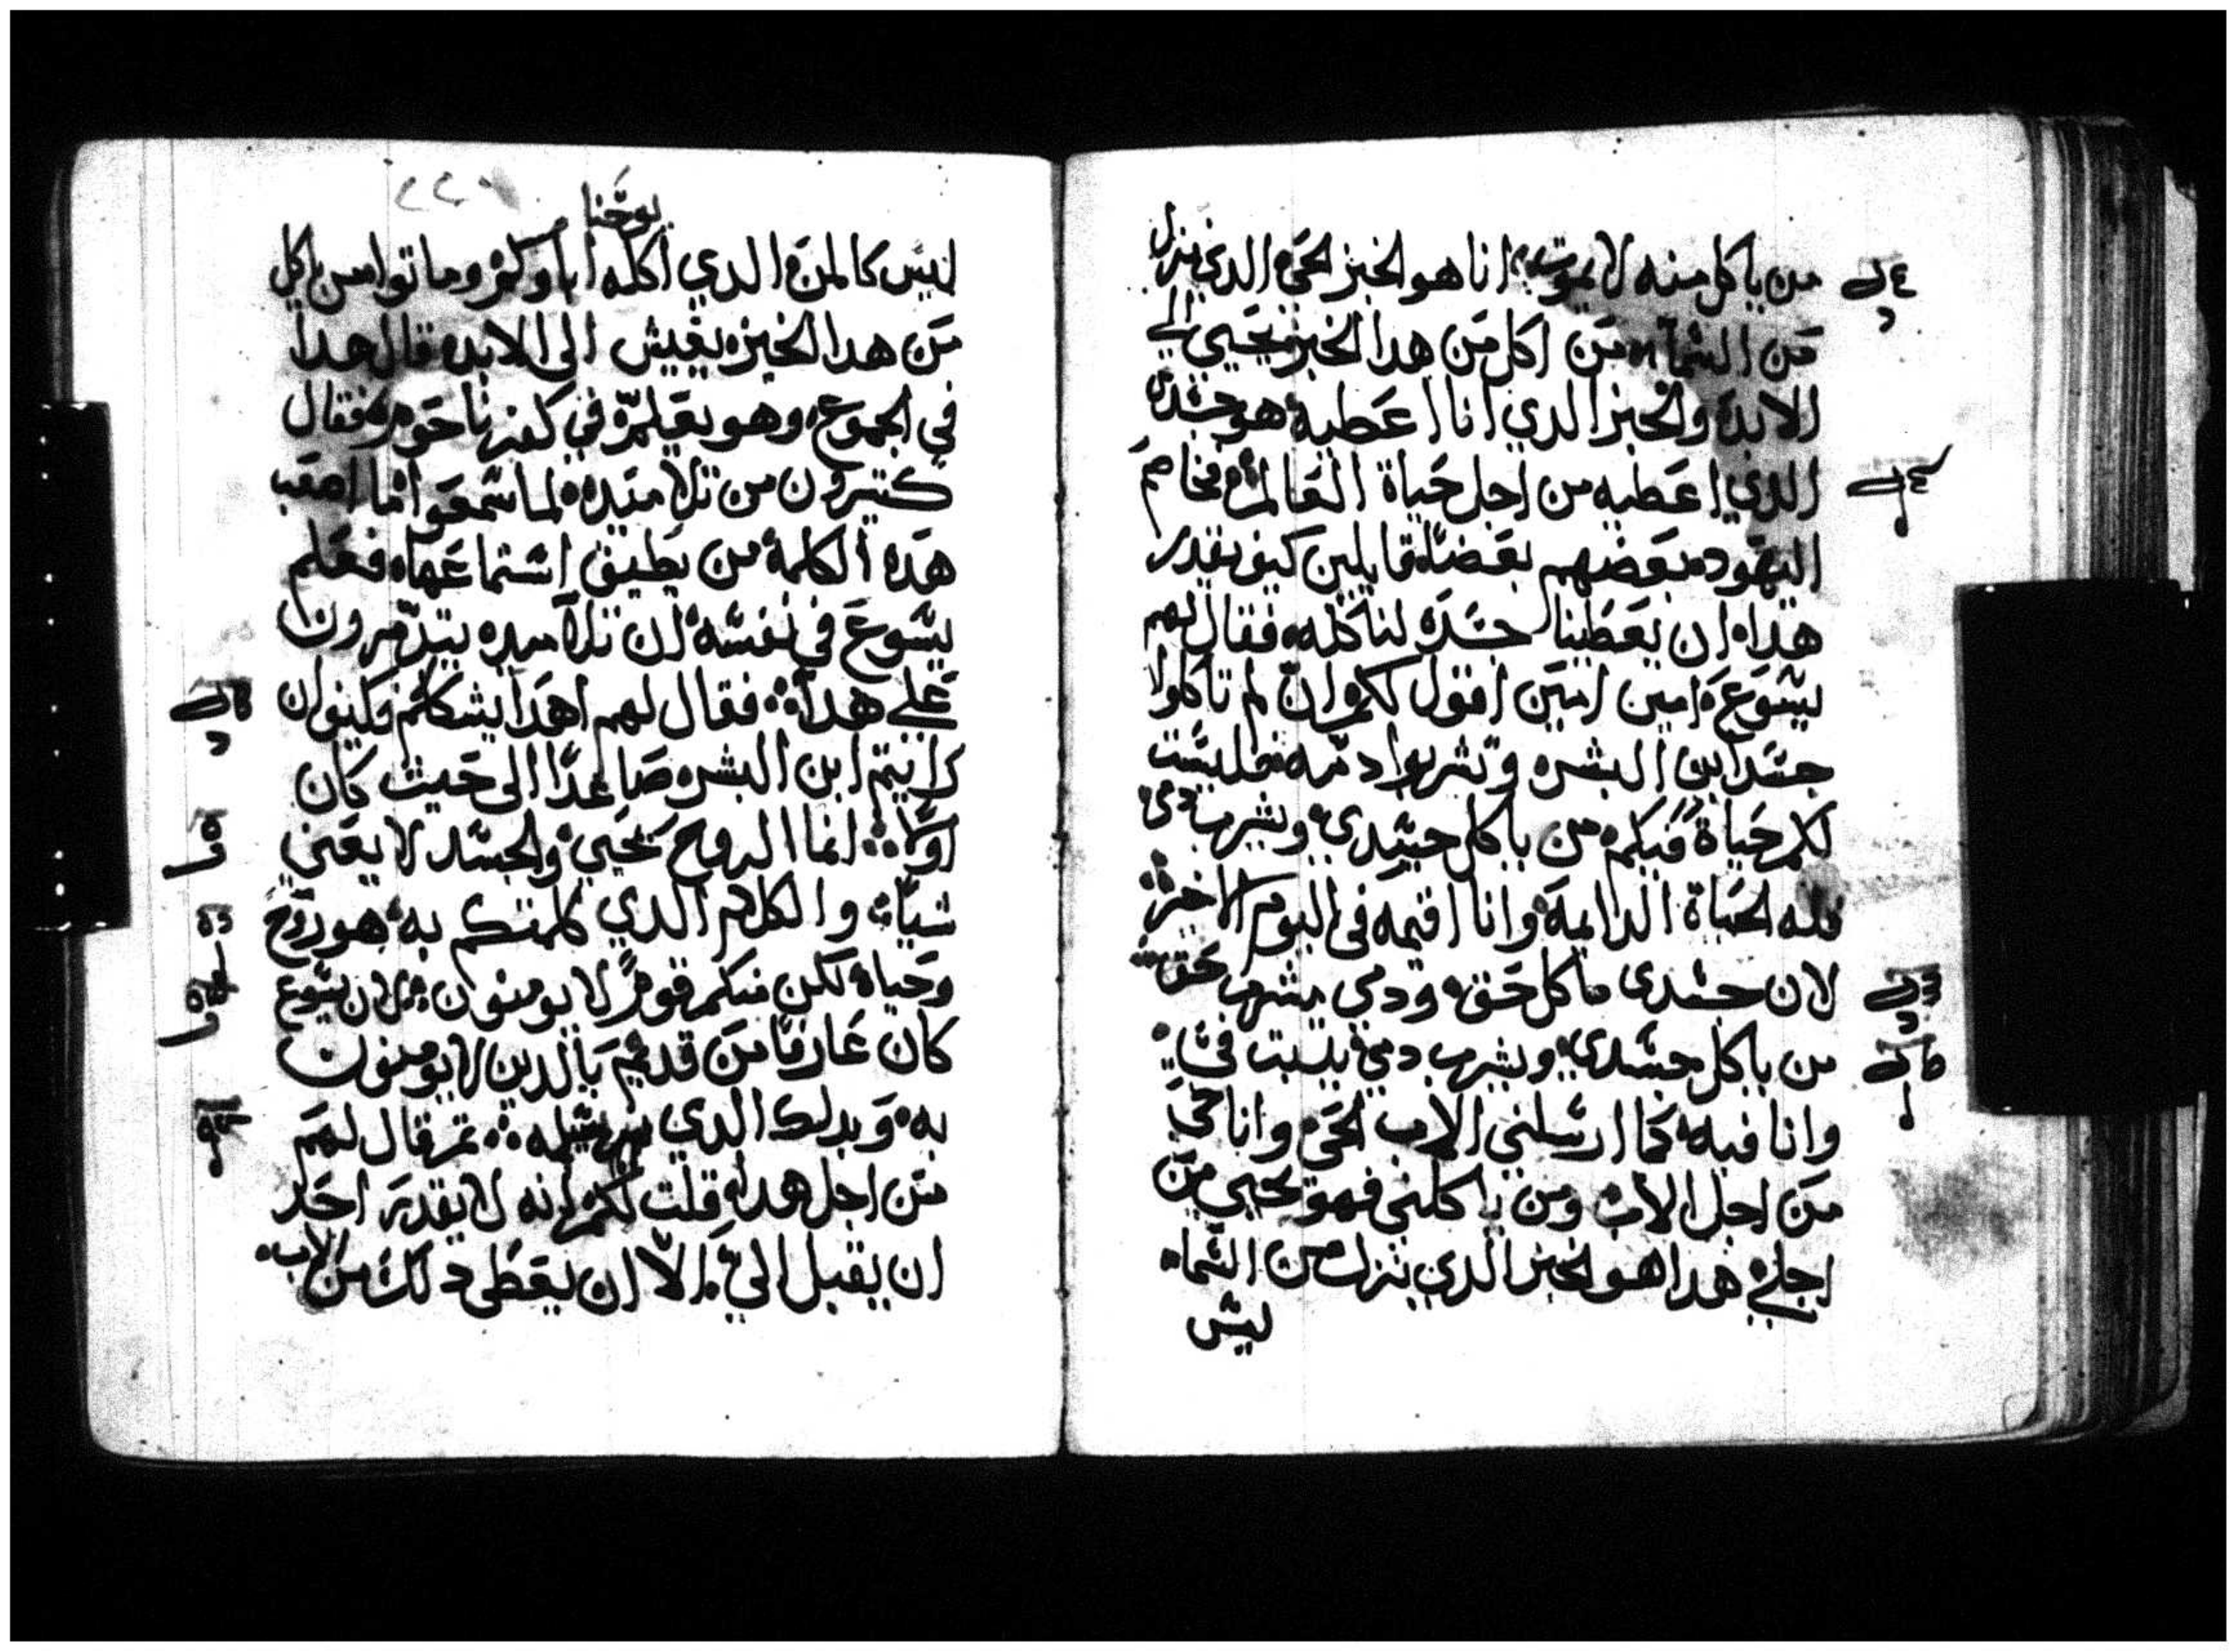 من ياكل منه لا يموت انا هو الخبز الحي الدي نزل
من السماء من اكل من هدا الخبز يحيي الي
الابد والخبز الدي انا اعطيه هو جسدي
الدي اعطيه من اجل حياة العالم فخاصم
اليهود بعضهم بعضا قايلين كيف يقدر
هدا ان يعطينا جسده لناكله فقال لهم
يسوع امين امين اقول لكم ان لم تاكلوا
جسد ابن البشر وتشربوا دمه فليست
لكم حياة فيكم من ياكل جسدي ويشرب دمي
فله الحياة الدايمة وانا اقيمه في اليوم الاخير
لان جسدي ماكل حق ودمي مشرب حق
من ياكل جسدي ويشرب دمي يلبت في
وانا فيه كما ارسلني الاب الحي وانا حي
من اجل الاب ومن ياكلني فهو يحيي من
اجلي هدا هو الخبز الدي نزل من السماء
ليس
يوحنا
ليس كالمن الدي اكله اباوكم وماتوا من ياكل
من هدا الخبز يعيش الى الابد قال هدا
في الجموع وهو يعلم في كفرناحوم فقال
كتيرون من تلاميده لما سمعوا ما اصعب
هده الكلمة من يطيق استماعها فعلم
يسوع في نفسه ان تلاميده يتدمرون
علي هدا فقال لهم اهدا يشككم فكيف ان
رايتم ابن البشر صاعدا الى حيث كان
اولا انما الروح يحيي والجسد لا يغني
شيا والكلام الدي كلمتكم به هو روح
وحياة لكن منكم قوم لا يومنون لان يسوع
كان عارفا من قديم بالدين لا يومنون
به وبدلك الدي يسلمه تم قال لهم
من اجل هدا قلت لكم انه لا يقدر احد
ان يقبل الي الا ان يعطى دلك من الاب